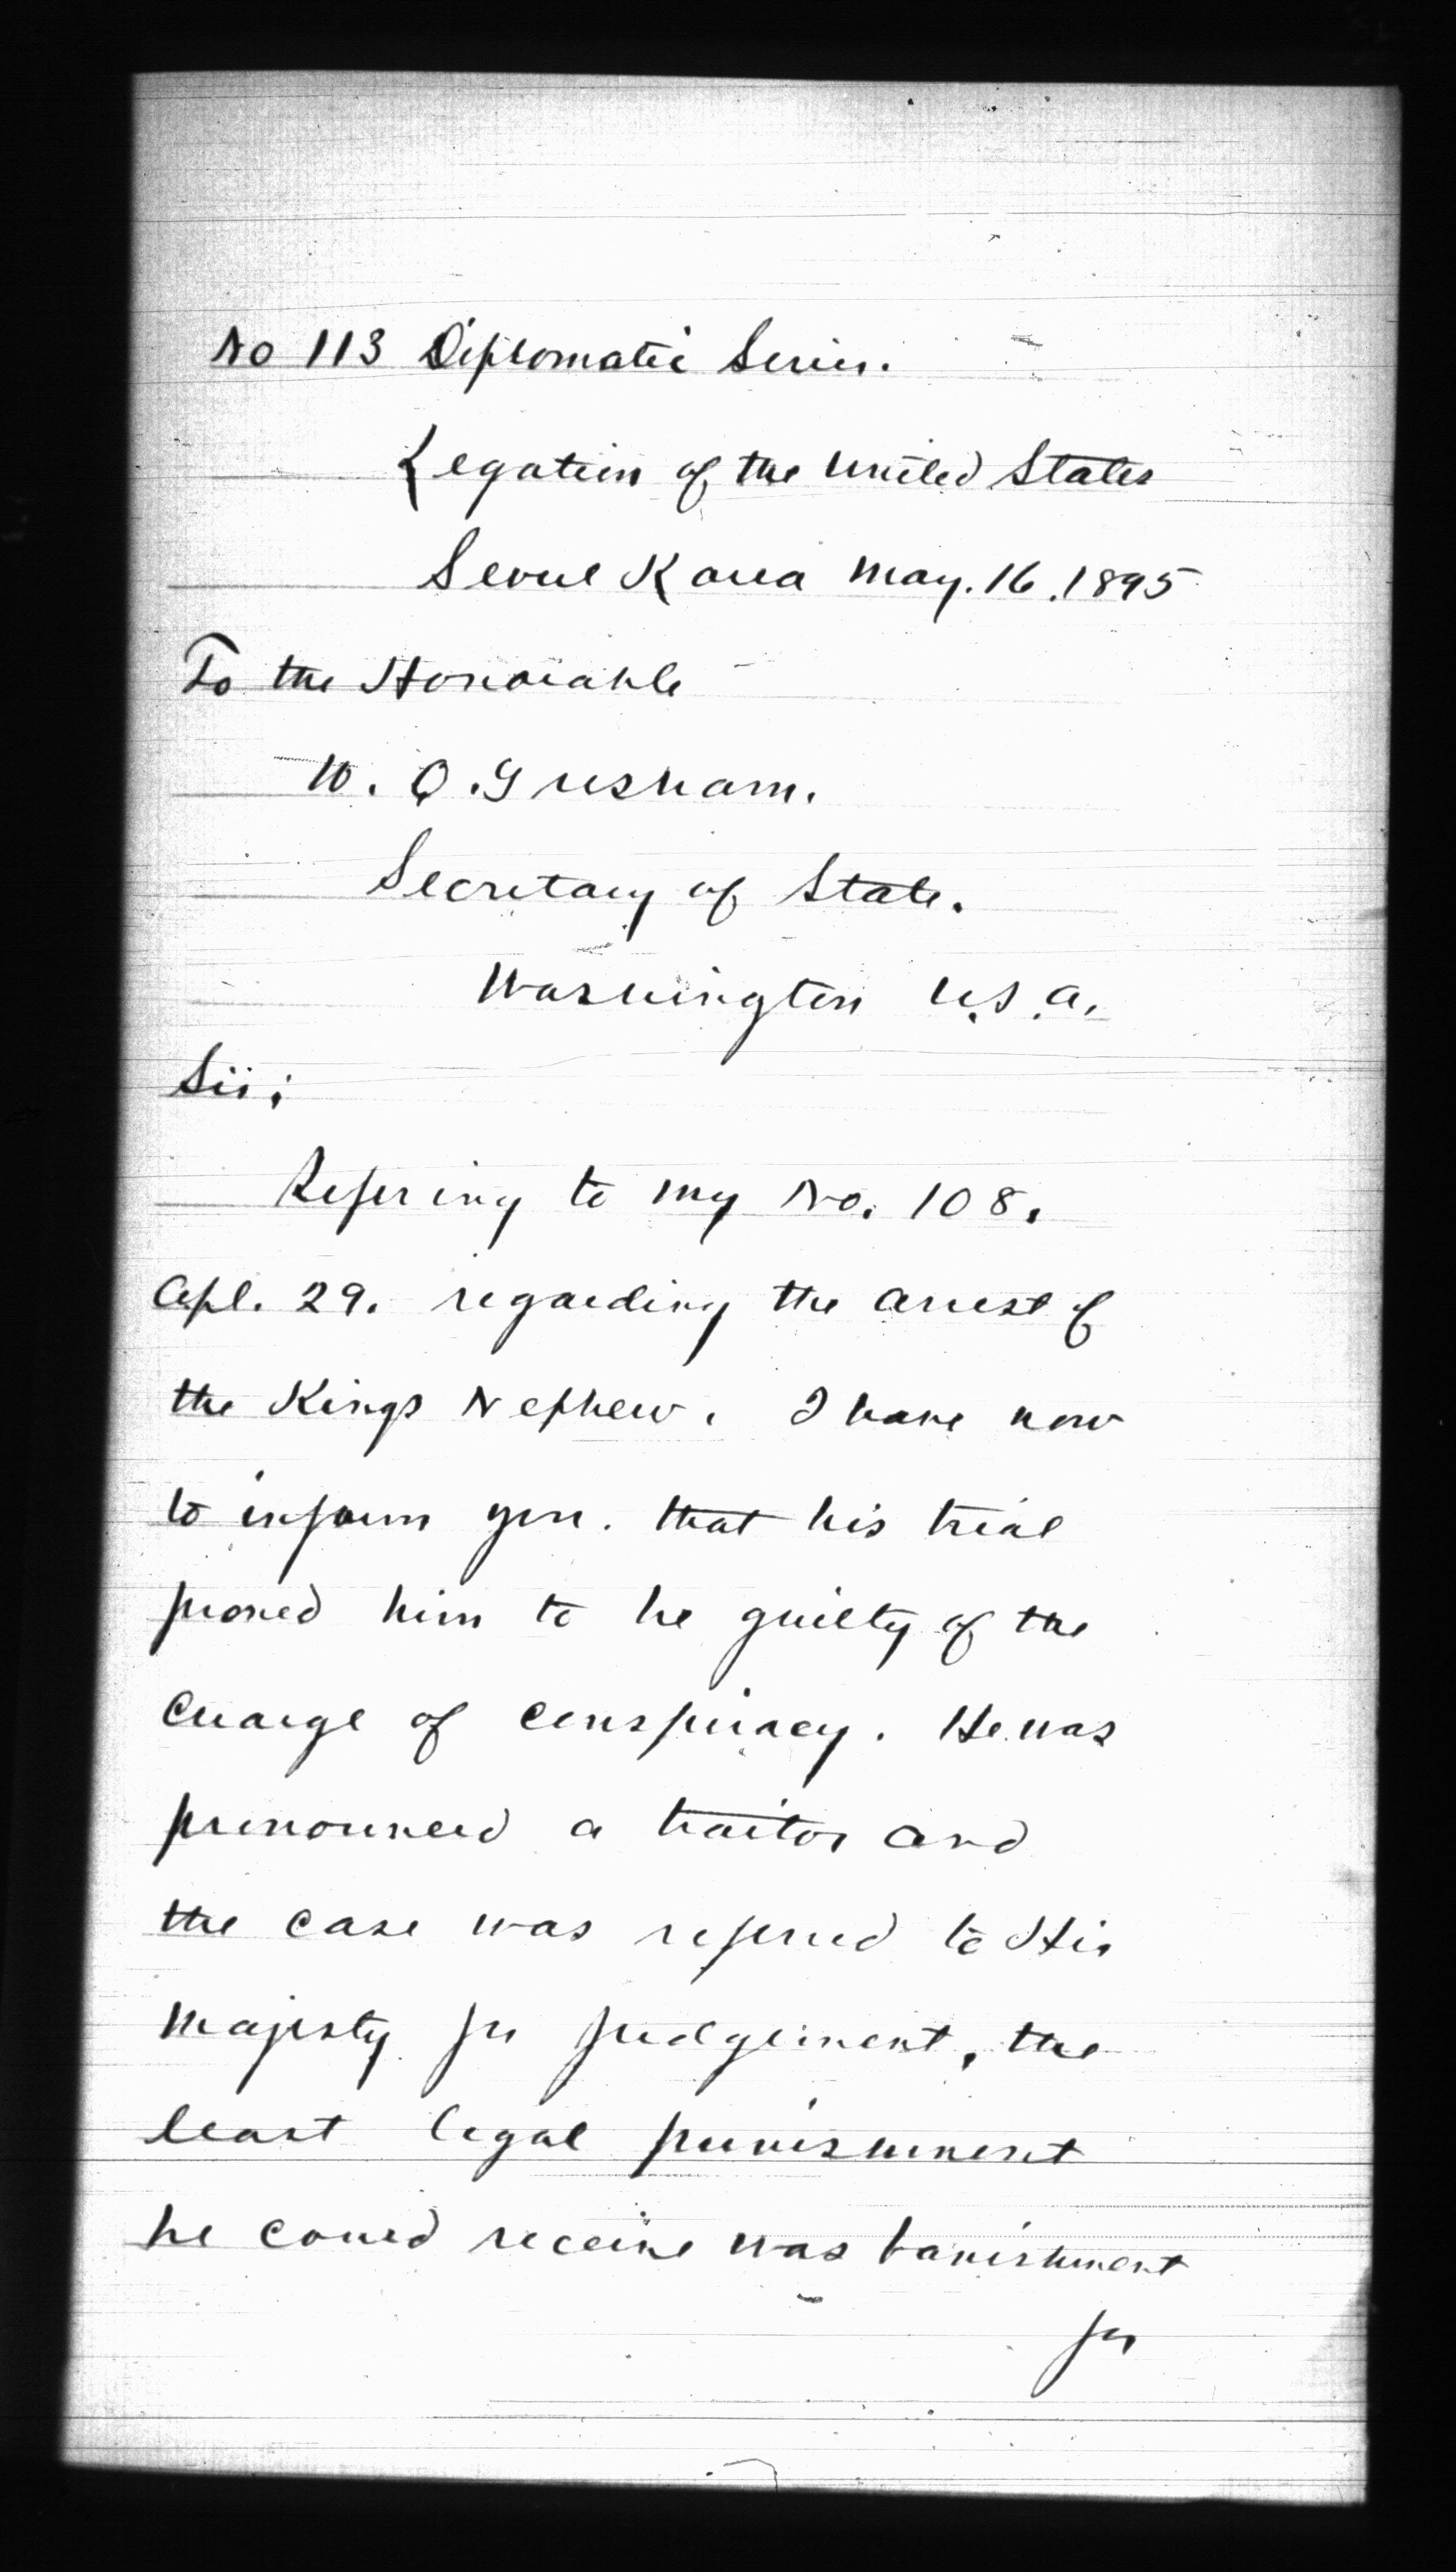 No 113 Diplomatic Series.
Legation of the United States
Seoul Korea May. 16. 1895
To the Honorable
W. Q. Gresham.
Secretary of State.
Washington U.S.A.
Sir;
Refering to my No. 108.
Apl. 29. regarding the arrest of
the Kings Nephew. I have now
to inform you. that his trial
proved him to be guilty of the
charge of conspiracy. He was
pronounced a traitor and
the case was refered to His
Majesty for judgement, the
least legal punishment
he could receive was banishment
for